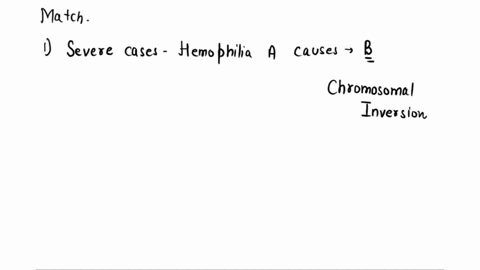 Match.
1) Severe cases - Hemophilia A causes → B
Chromosomal
Inversion